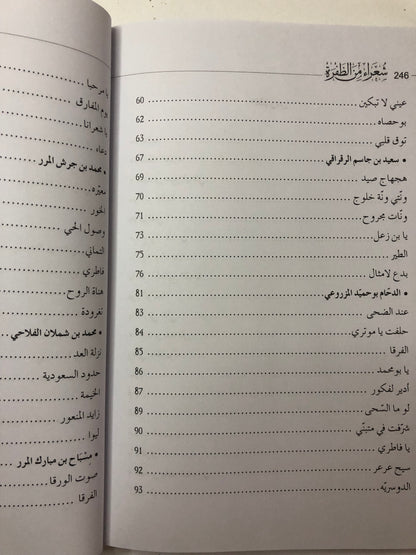 شعراء من الظفرة 246
عيني لا تبكين 60
بو حصاه 62
توق قلبي 63
• سعيد بن جاسم الرقراقي 67
هجهاج صيد 69
ونّتي ونّة خلوج 70
ونّات مجروح 71
يا بن زعل 73
الطير 75
بدع لامثال 76
• الدحّام بوحميّد المزروعي 81
عند الضحى 83
حلفت يا موتري 84
الفرقا 85
يا بو محمد 86
أدير لفكور 87
لو ما السّحى 89
شرّفت في متبنّي 90
يا فاطري 91
سيح عرعر 92
الدوسريّه 93
يا مرحبا
يوم المفارق
يا شعرانا
دعاه
• محمد بن جرش المرر
سعيّره
الخور
وصول الحبي
النماني
فاطري
هناة الروح
تغرودة
• محمد بن شملان الفلاحي
نزلة العد
حدود السعودية
الخيمة
زايد المنعور
ليوا
• مصباح بن مبارك المرر
صوت الورقا
الفرقا